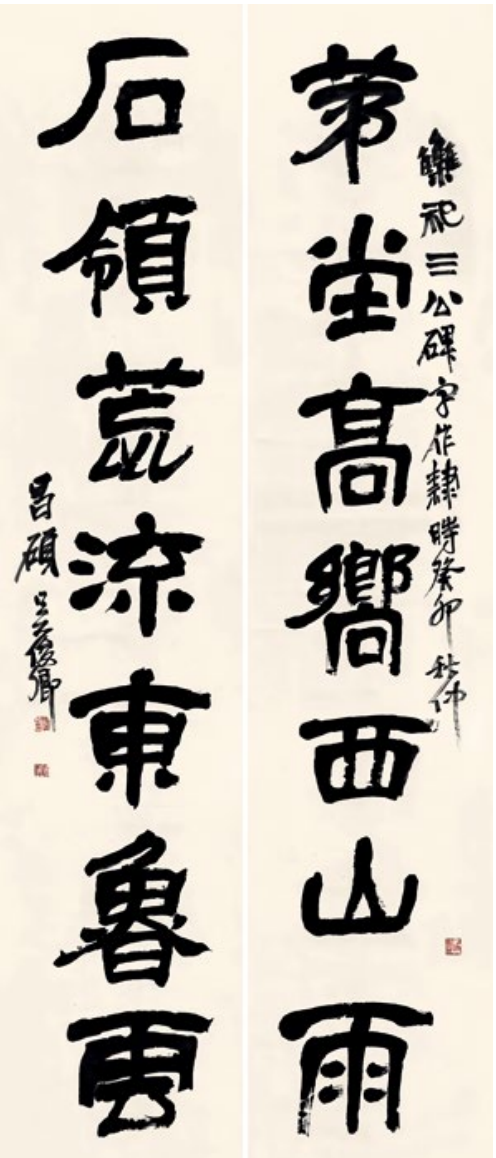 雧祀三公碑字作隸時癸卯秋仲
茅堂高嚮西山雨
石領荒流東魯雲
昌碩吳俊卿